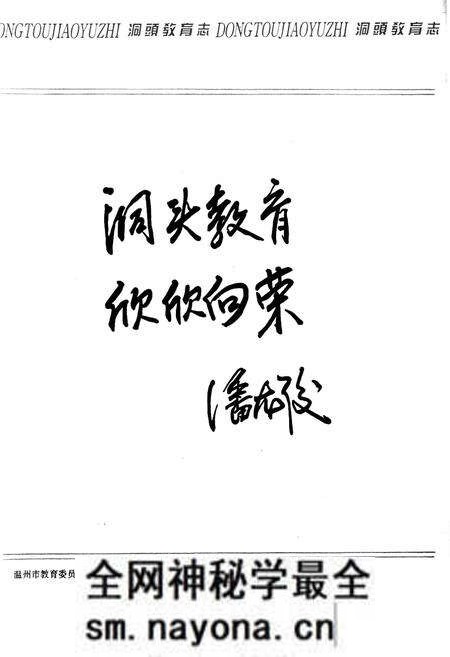 ONGTOUJIAOYUZHI 洞頭教育志 DONGTOUJIAOYUZHI 洞頭教育志
洞头教育
欣欣向荣
温州市教育委员
全网神秘学最全
sm.nayona.cn